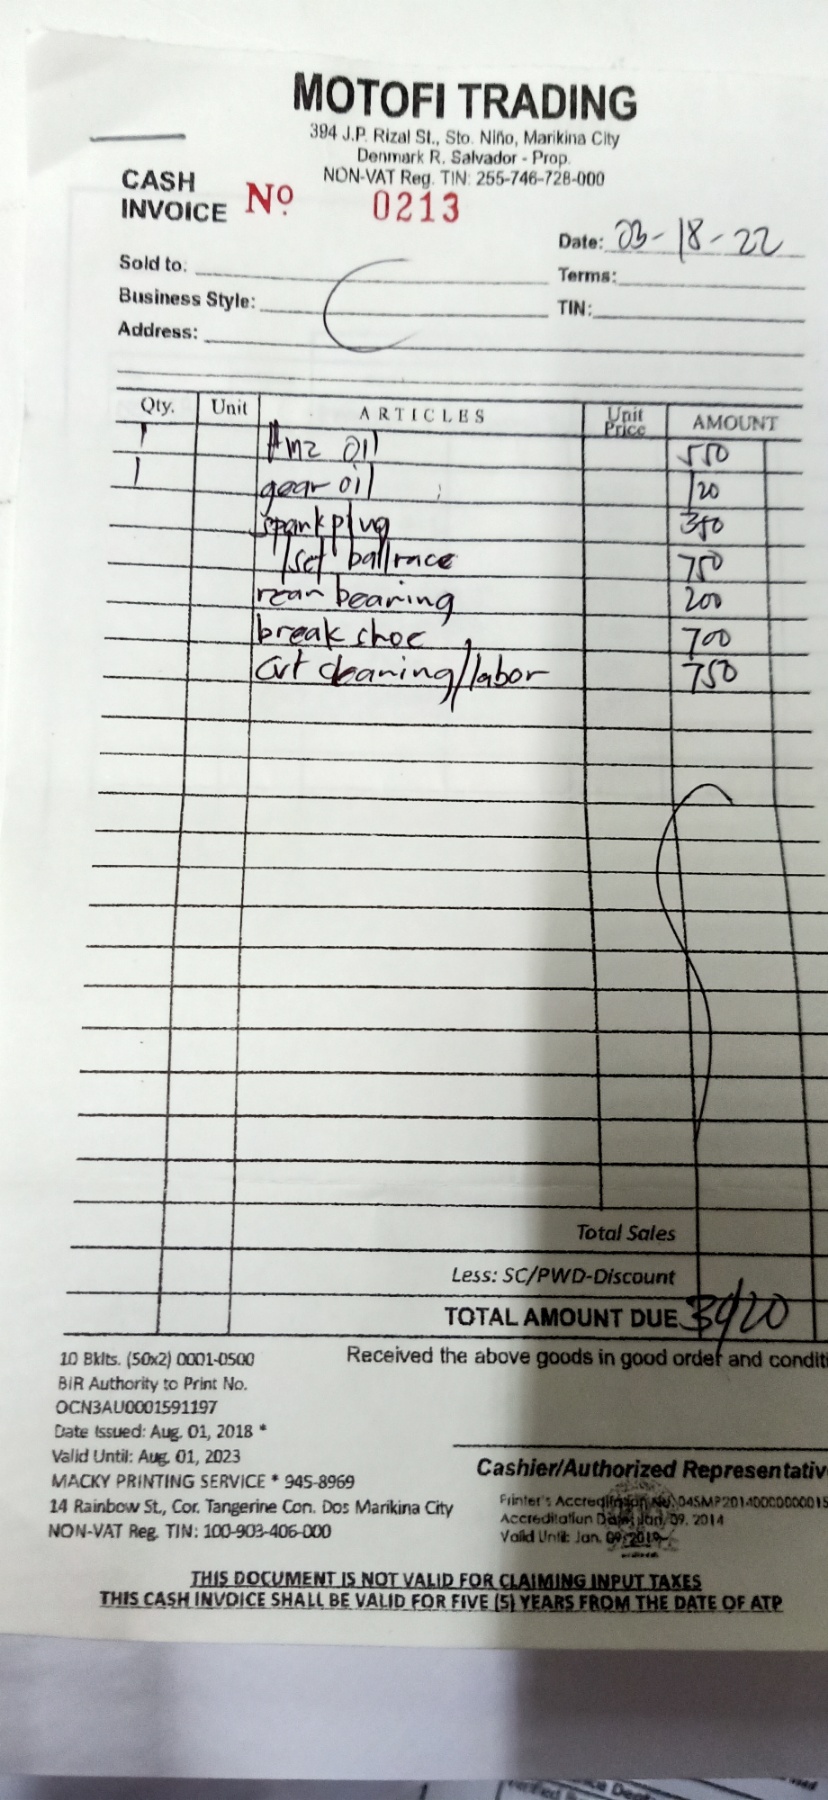 MOTOFI TRADING
394 J.P. Rizal St., Sto. Niño, Marikina City
Denmark R. Salvador - Prop.
NON-VAT Reg. TIN: 255-746-728-000
CASH INVOICE Nº 0213
Date: 03-18-22
Sold to:
Terms:
Business Style:
TIN:
Address:
Qty. Unit ARTICLES Unit Price AMOUNT
1 oil 550
1 gear oil 120
spark plug 350
1set ballrace 750
rear bearing 200
break shoe 700
cvt cleaning/labor 750
Total Sales
Less: SC/PWD-Discount
TOTAL AMOUNT DUE 3420
10 Bklts. (50x2) 0001-0500
Received the above goods in good order and conditi
BIR Authority to Print No.
OCN3AU0001591197
Date Issued: Aug. 01, 2018 *
Valid Until: Aug. 01, 2023
MACKY PRINTING SERVICE * 945-8969
14 Rainbow St., Cor. Tangerine Con. Dos Marikina City
NON-VAT Reg. TIN: 100-903-406-000
Cashier/Authorized Representativ
Printer's Accreditation No. 045MP20140000000015
Accreditation Date: Jan. 09. 2014
Valid Until: Jan. 09, 2019
THIS DOCUMENT IS NOT VALID FOR CLAIMING INPUT TAXES
THIS CASH INVOICE SHALL BE VALID FOR FIVE (5) YEARS FROM THE DATE OF ATP